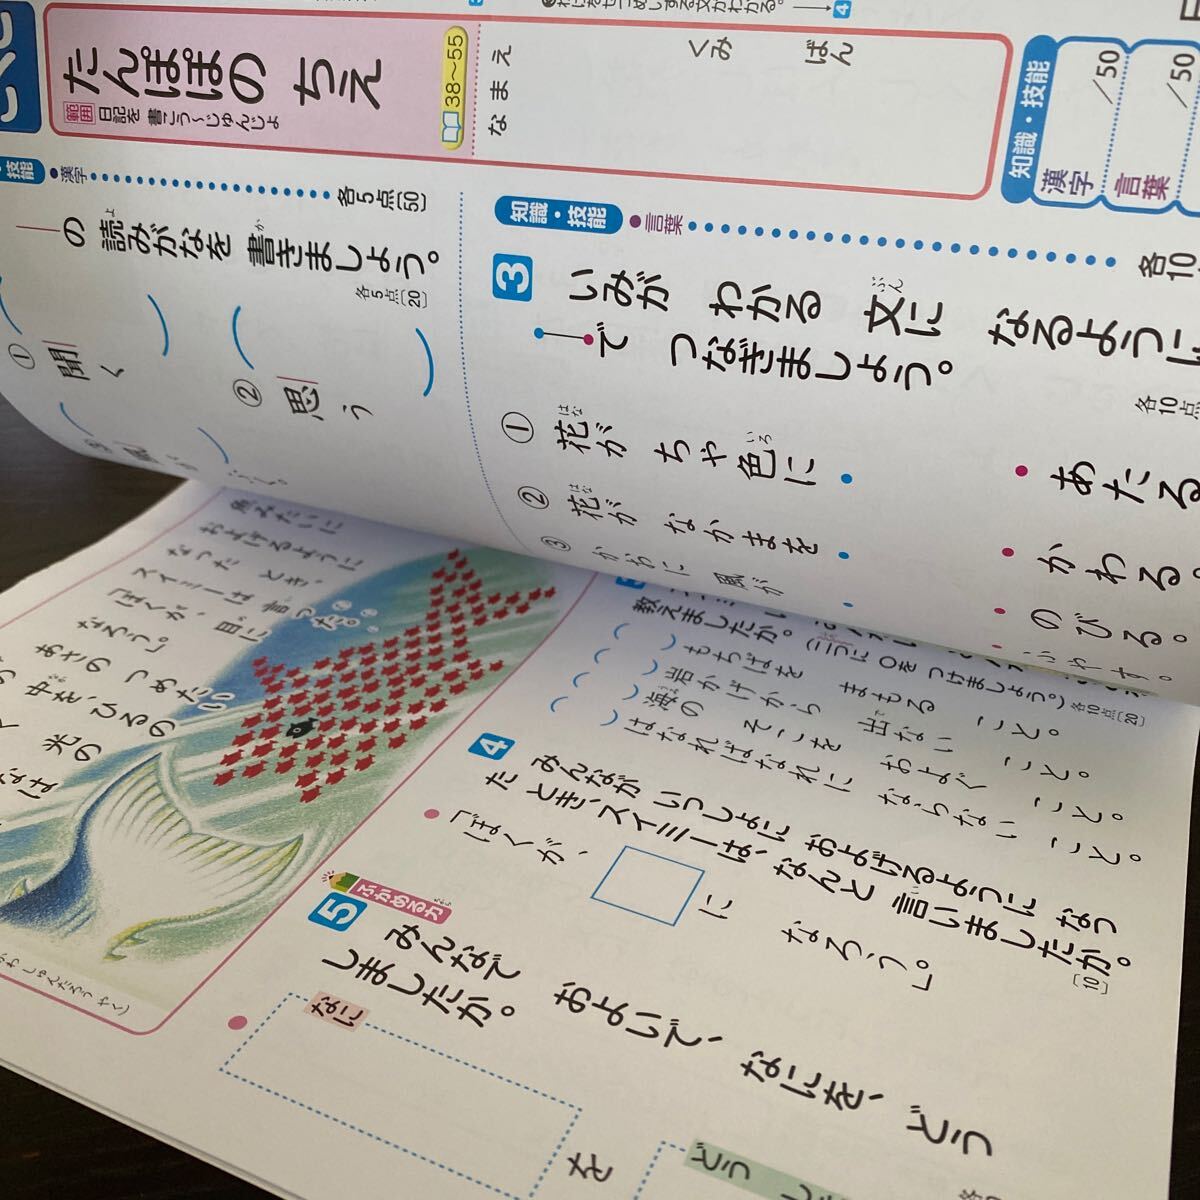 たんぽぽの ちえ
範囲 日記を 書こう～じゅんじょ
38～55
なまえ
くみ
ばん
知識・技能
漢字 /50
言葉 /50
技能
漢字
各5点〔50〕
の 読みがなを 書きましょう。
各5点〔20〕
① 聞く
② 思う
知識・技能
言葉
各10
3 いみが わかる 文に なるように
で つなぎましょう。
各10点
① 花が ちゃ色に
② 花が なかまを
③ かわに 風が
あたる
かわる。
のびる。
ふやす。
魚みたいに
およげるように
なった とき、
スイミーは 言った。
「ぼくが、目に
なろう。」
あさの つめたい
中を、ひるの
光の
教えましたか。
に ○を つけましょう。）
各10点〔20〕
もちばを まもる こと。
岩かげから 出ない こと。
海の そこを およぐ こと。
はなればなれに ならない こと。
4 みんなが いっしょに およげるように なっ
た とき、スイミーは、なんと 言いましたか。
〔10〕
「ぼくが、
に なろう。」
ふかめる力
5 みんなで およいで、なにを、どう
しましたか。
なに
を
どう